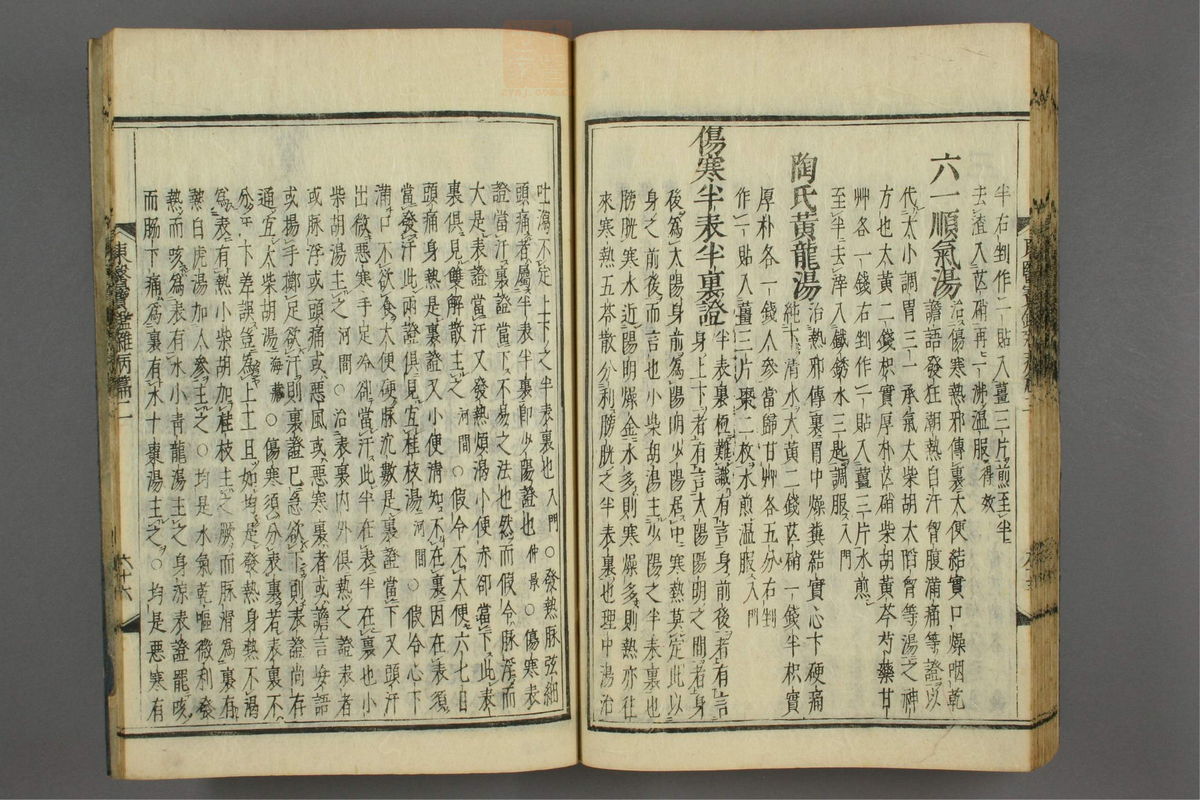 半右剉作二貼入薑三片煎至半
去渣入芒硝再一沸溫服得效
六一順氣湯 治傷寒熱邪傳裏大便結實口燥咽乾
譫語發狂潮熱自汗胷腹滿痛等證以
代大小調胃三一承氣大柴胡大陷胷等湯之神
方也大黃二錢枳實厚朴芒硝柴胡黃芩芍藥甘
艸各一錢右剉作一貼入薑三片水煎
至半去滓入鐵銹水三匙調服入門
陶氏黃龍湯 治熱邪傳裏胃中燥糞結實心下硬痛
純下清水大黃二錢芒硝一錢半枳實
厚朴各一錢人參當歸甘艸各五分右剉
作一貼入薑三片棗二枚水煎溫服入門
傷寒半表半裏證 半表裏極難識有言身前後者有言
身上下者有言太陽陽明之間者身
後爲太陽身前爲陽明少陽居中寒熱莫定此以
身之前後而言也小柴胡湯主少陽之半表裏也
膀胱寒水近陽明燥金水多則寒燥多則熱亦往
來寒熱五苓散分利膀胱之半表裏也理中湯治
吐瀉不定上下之半表裏也入門○發熱脉弦細
頭痛者屬半表半裏卽少陽證也仲景○傷寒表
證當汗裏證當下不易之法也然而假令脉浮而
大是表證當汗又發熱煩渴小便赤卻當下此表
裏俱見雙解散主之河間○假令不大便六七日
頭痛身熱是裏證又小便清知不在裏因在表須
當發汗此兩證俱見宜桂枝湯河間○假令心下
滿口不欲食大便硬脉沉數是裏證當下又頭汗
出微惡寒手足冷卻當汗此半在表半在裏也小
柴胡湯主之河間○治表裏內外俱熱之證表者
或脉浮或頭痛或惡風或惡寒裏者或譫言妄語
或揚手擲足欲汗則裏證已急欲下則表證尚存
通宜大柴胡湯海藏○傷寒須分表裏若表裏不
分汗下差誤豈爲上工且如均是發熱身熱不渴
爲表有熱小柴胡加桂枝主之厥而脉滑爲裏有
熱白虎湯加人參主之○均是水氣乾嘔微利發
熱而咳爲表有水小靑龍湯主之身涼表證罷咳
而脇下痛爲裏有水十棗湯主之○均是惡寒有
東醫寶鑑雜病篇二
六十六